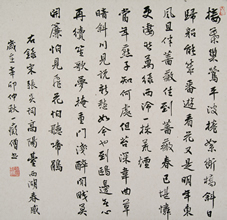 接葉巢鶯平波捲絮斷橋斜日
歸船能幾番遊看花又是明年東
風且伴薔薇住到薔薇春已堪憐
更淒然萬綠西泠一抹荒煙
當年燕子知何處但苔深韋曲草
暗斜川見說新愁如今也到鷗邊無心
再續笙歌夢掩重門淺醉閒眠莫
開簾怕見飛花怕聽啼鵑
右錄宋張炎詞高陽臺西湖春感
歲在辛卯仲秋